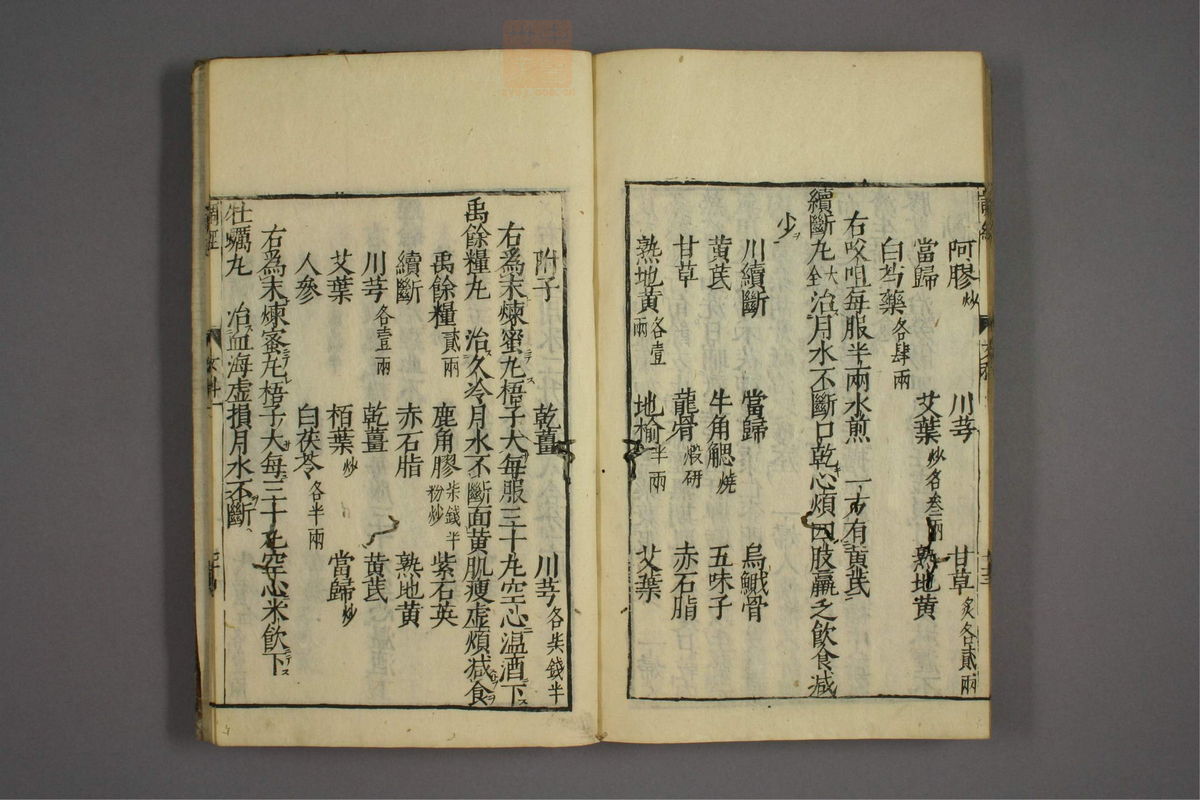 阿膠炒 川芎 甘草炙各貳兩
當歸 艾葉炒各叁兩 熟地黄
白芍藥各肆兩
右㕮咀每服半兩水煎 一方有黄芪
續斷丸 治月水不斷口乾心煩四肢羸乏飲食减
少
川續斷 當歸 烏鰂骨
黄芪 牛角䚡燒 五味子
甘草 龍骨煅研 赤石脂
熟地黄各壹兩 地榆半兩 艾葉
附子 乾薑 川芎各柒錢半
右爲末煉蜜丸梧子大每服三十丸空心温酒下
禹餘糧丸 治久冷月水不斷面黄肌瘦虚煩减食
禹餘糧貳兩 鹿角膠柒錢半粉炒 紫石英
續斷 赤石脂 熟地黄
川芎各壹兩 乾薑 黄芪
艾葉 栢葉炒 當歸炒
人參 白茯苓各半兩
右爲末煉蜜丸梧子大每三十丸空心米飲下
牡蠣丸 治血海虚損月水不斷